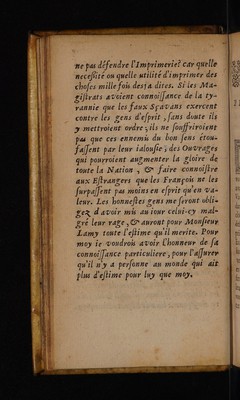 ne pas défendre l'Imprimerie? car quelle
necessité ou quelle utilité d'imprimer des
choses mille fois desia dites. Si les Ma-
gistrats avoient connoissance de la ty-
rannie que les faux Sçavans exercent
contre les gens d'esprit, sans doute ils
y mettroient ordre; ils ne souffriroient
pas que ces ennemis du bon sens étou-
fassent par leur ialousie, des Ouvrages
qui pourroient augmenter la gloire de
toute la Nation, & faire connoistre
aux Estrangers que les François ne les
surpassent pas moins en esprit qu'en va-
leur. Les honnestes gens me seront obli-
gez d'avoir mis au iour celui-cy mal-
gré leur rage, & auront pour Monsieur
Lamy toute l'estime qu'il merite. Pour
moy ie voudrois avoir l'honneur de sa
connoissance particuliere, pour l'assurer
qu'il n'y a personne au monde qui ait
plus d'estime pour luy que moy.